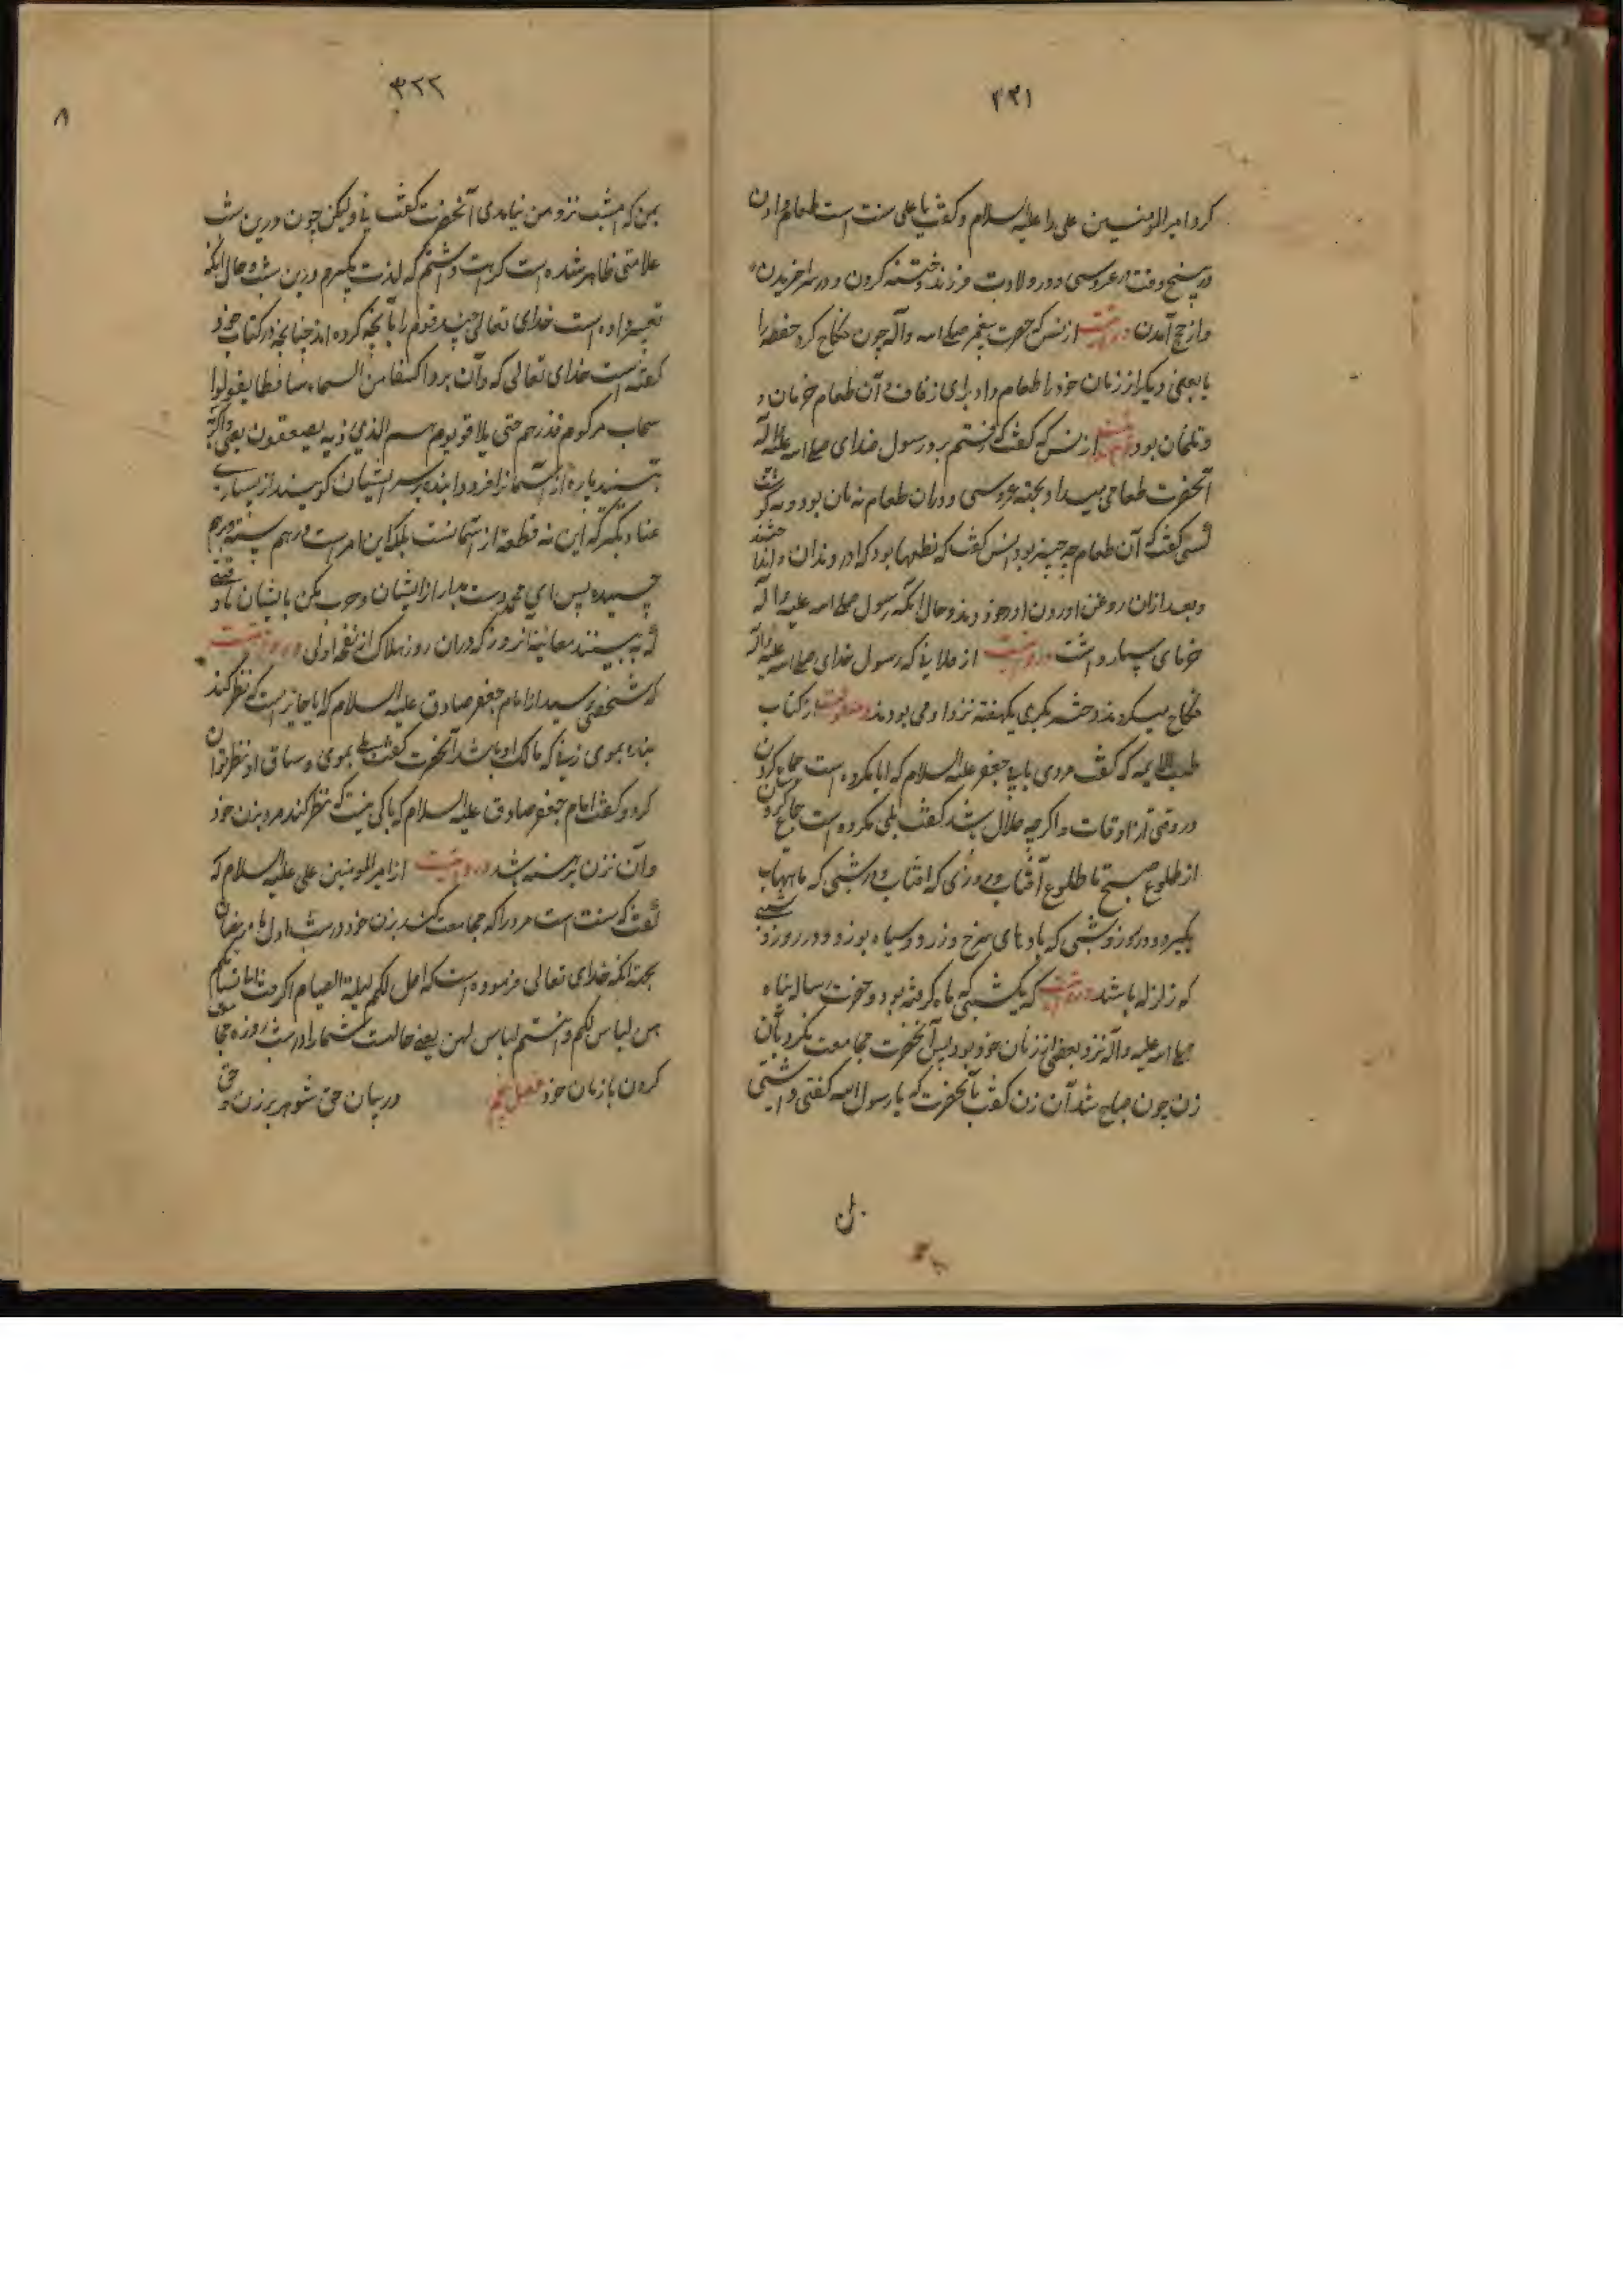 ۳۲۱
کرد امیرالمومنین علی را علیه السلام و گفت یا علی سنت است طعام دادن
در پنج وقت در عروسی و در ولادت فرزند و ختنه کردن و در سرا خریدن
و از حج آمدن و روایت از انس که حضرت پیغمبر صلی الله وآله چون نکاح کرد حفصه را
یا بعضی دیگر از زنان خود را طعام داد برای زفاف و آن طعام خرمان و
و تلمان بود از انس که گفت که رفتم بر رسول خدای صلی الله علیه وآله
آنحضرت طعامی میداد بجهة عروسی و دران طعام نه نان بود و نه گوشت
کسی گفت که آن طعام چه چیز بود انس گفت که نطعها بود که آوردند آن
و بعد ازان روغن آوردن و خوردند و حال آنکه رسول صلی الله علیه وآله
خرمای بسیار داشت و روایت از که رسول خدای صلی الله علیه وآله
نکاح میکردند و دختر بکری یکهفته نزد او می بودند و منقولست از کتاب
طب الائمه که گفت مردی بابی جعفر علیه السلام که ایا مکروه است جماع کردن
در وقتی از اوقات و اگرچه حلال باشد گفت بلی مکروه است جماع کردن
از طلوع صبح تا طلوع آفتاب و روزی که افتاب و در شبی که ماهتاب
بگیرد و در روز و شبی که بادهای سرخ و زرد و سیاه بوزد و در روز و شبی
که زلزله باشد و روایت که یکشبی که ماه گرفته بود و حضرت رسالت پناه
صلی الله علیه وآله نزد بعضی از زنان خود بود پس آنحضرت مجامعت نکرد بآن
زن چون صباح شد آن زن گفت بآنحضرت که یا رسول الله
۳۲۲
۸
بمن که امشب نزد من نیامدی آنحضرت گفت نی ولیکن چون درین شب
علامتی ظاهر شده است کراهت داشتم که لذت بگیرم درین شب و حال آنکه
تعییر داده است خدای تعالی چند قوم را بآنچه کرده اند چنانچه در کتاب خود
گفته است خدای تعالی که وان یروا کسفا من السماء ساقطا یقولوا
سحاب مرکوم فذرهم حتی یلاقوا یومهم الذی فیه یصعقون یعنی و اگر
بینند پاره از آسمانرا فرود آینده بر سر ایشان گویند از بسیاری
عناد که این نه قطعه از آسمانست بلکه این ابر است درهم بسته و برهم
چسبیده پس ای محمد دست بدار از ایشان و حرب مکن بایشان تا وقتی
که ببینند معاینه آنروز که دران روز هلاک از نفخه اولی و روایت
که شخصی پرسید از امام جعفر صادق علیه السلام که آیا جایز است که نظر کند
بنده بموی زنی که مالک او باشد آنحضرت گفت بلی بموی و ساق او نظر توان
کرد و گفت امام جعفر صادق علیه السلام که باکی نیست که نظر کند مرد بزن خود
و آن زن برهنه باشد و روایت از امیرالمومنین علی علیه السلام که
گفت که سنت است مرد را که مجامعت کند بزن خود در شب اول ماه رمضان
بجهة آنکه خدای تعالی فرموده است که احل لکم لیلة الصیام الرفث الی نسائکم
هن لباس لکم وانتم لباس لهن یعنی حالست شما را در شب روزه مجامعت
کردن با زنان خود فصل پنجم در بیان حق شوهر بر زن و حق